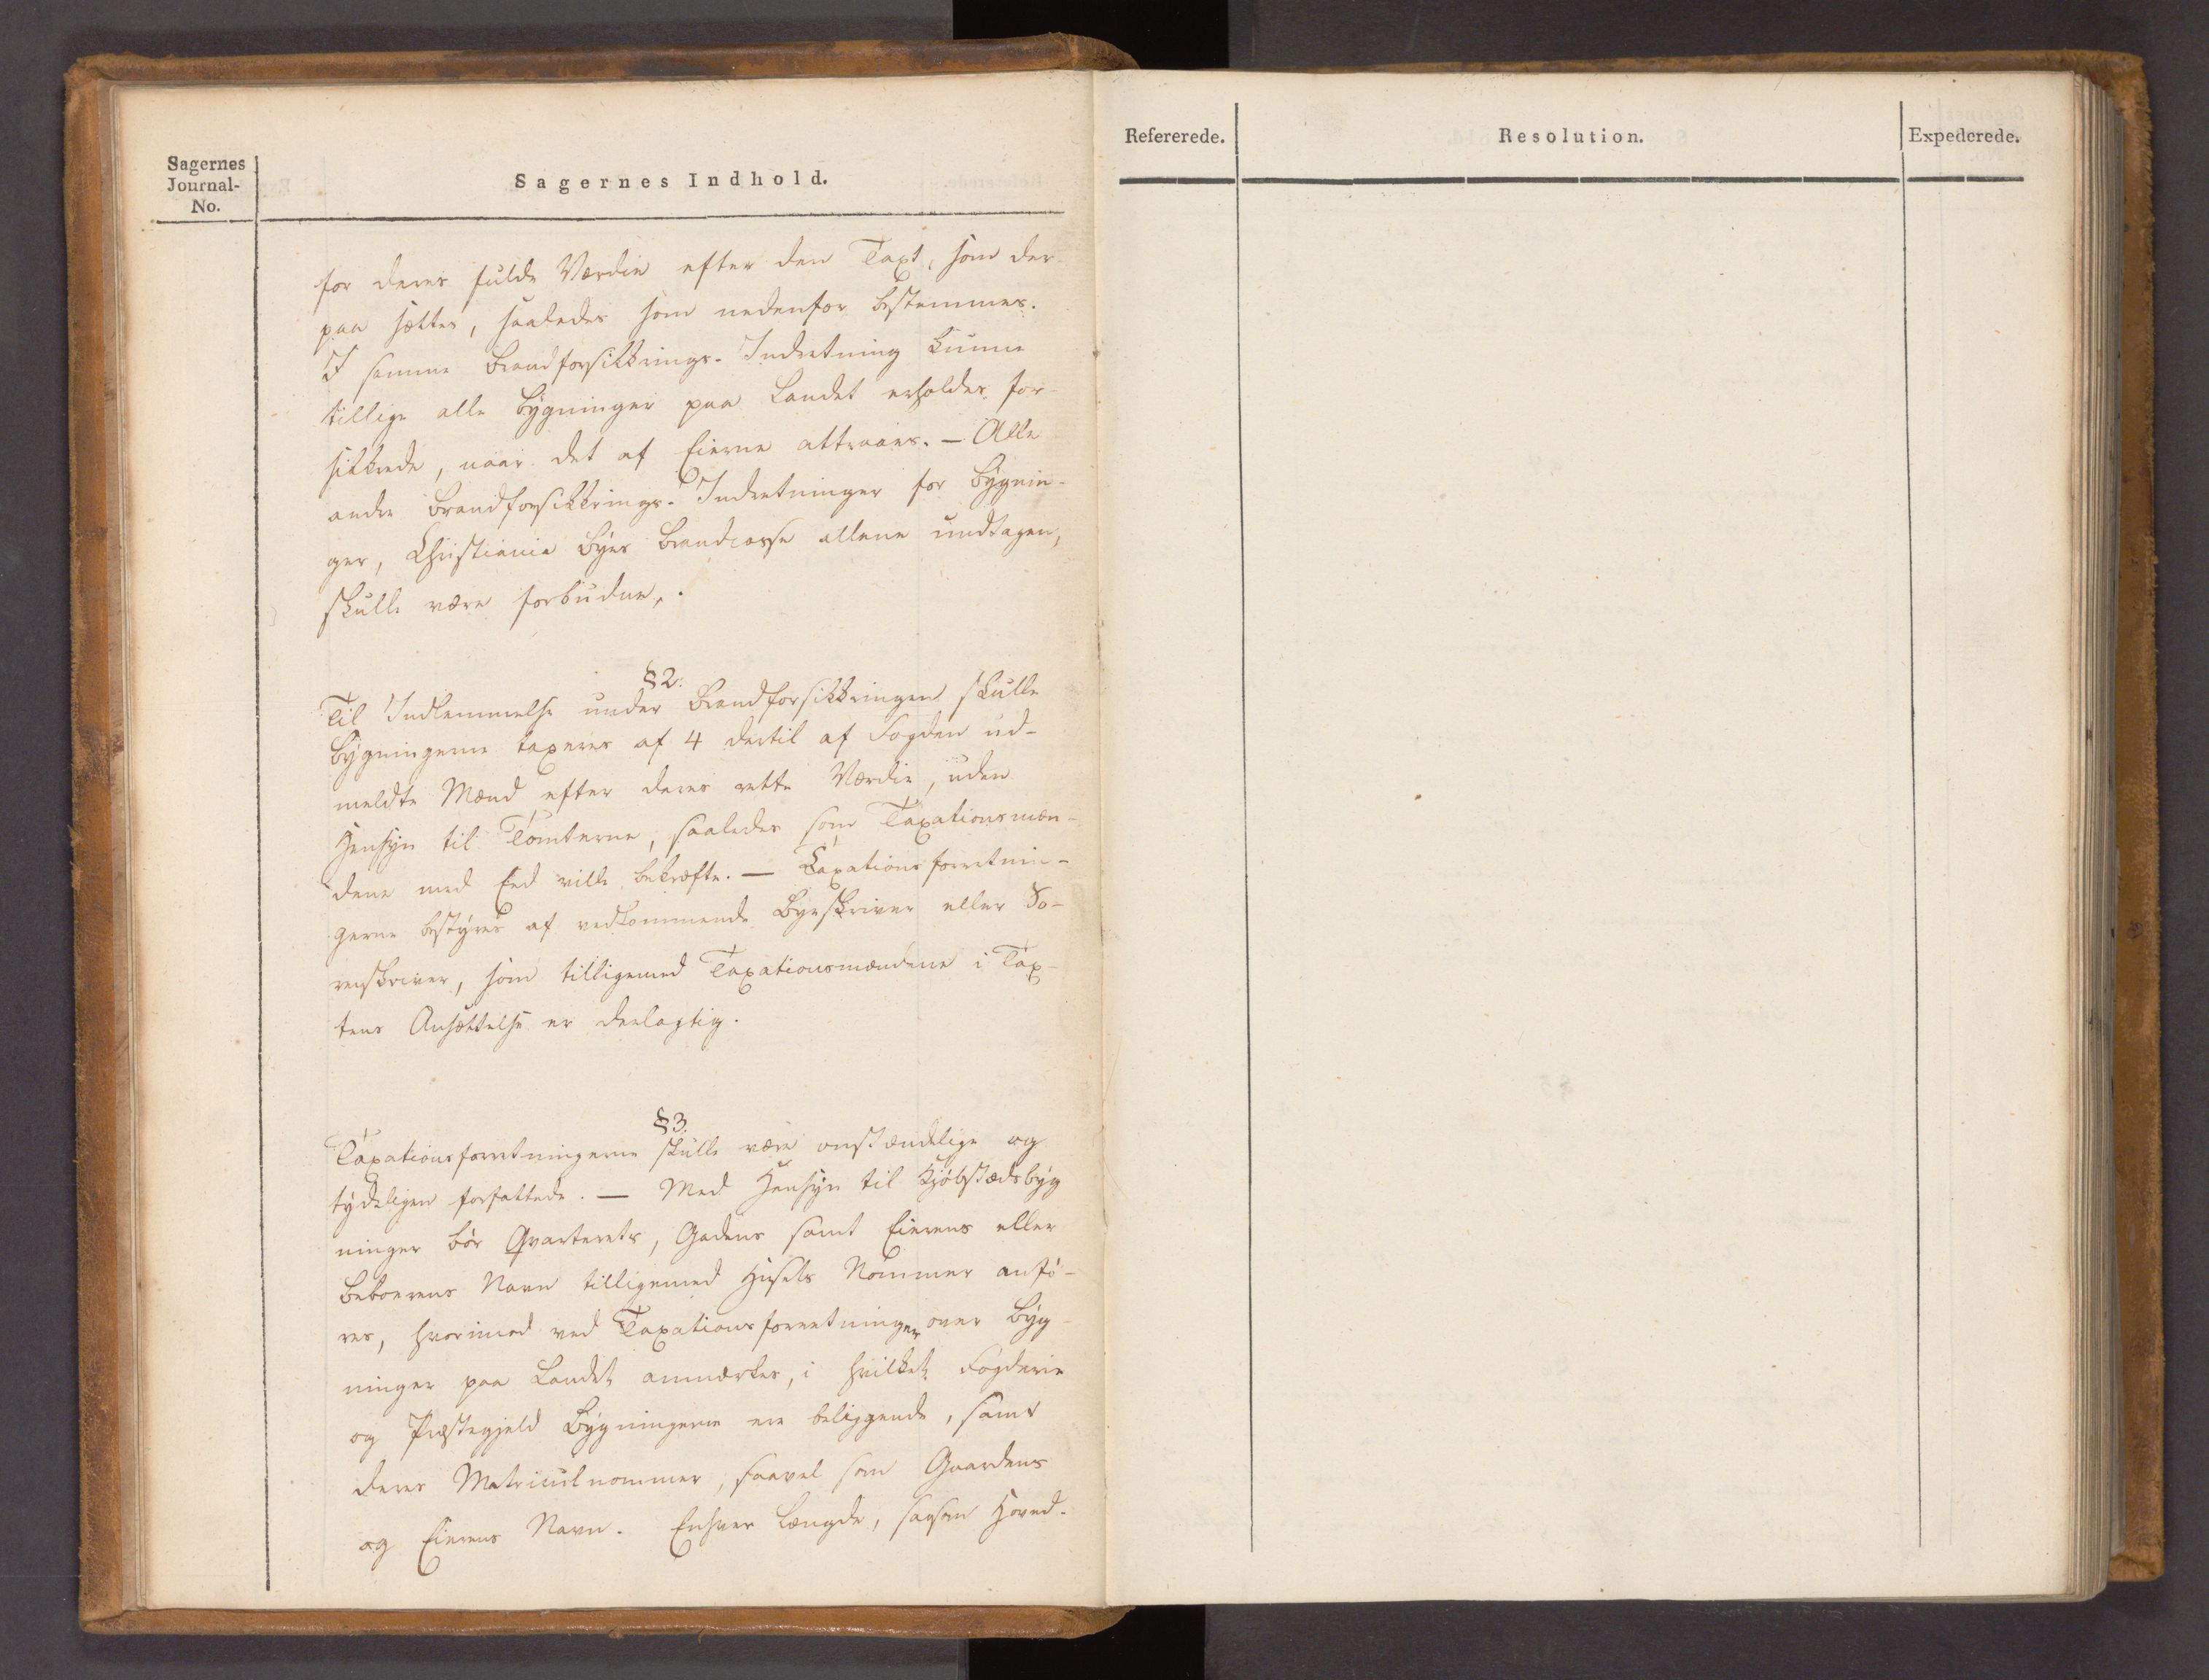 Sagernes
Journal-
No.
Sagernes Indhold.
for deres fulde Værdie efter den Taxt, som der
paa sættes, saaledes som nedenfor bestemmes.
I samme Brandforsikkrings-Indretning kunne
tillige alle Bygninger paa Landet erholdes for-
sikkrede, naar det af Eierne attraaes. — Alle
andre Brandforsikkrings-Indretninger for Bygnin-
ger, Christiania Byes Brandcasse allene undtagen,
skulle være forbudne,.
§2.
Til Indlemmelse under Brandforsikkringen skulle
Bygningerne taxeres af 4 dertil af Fogden ud-
meldte Mænd efter deres rette Værdie, uden
Hensyn til Tomterne, saaledes som Taxationsmæn-
dene med Eed ville bekræfte. — Taxationsforretnin-
gerne bestyres af vedkommende Byeskriver eller So-
renskriver, som tilligemed Taxationsmændene i Tax-
tens Ansættelse er deelagtig.
§3.
Taxationsforretningerne skulle være omstændelige og
tydeligen forfattede. — Med Hensyn til Kjøbstædsbyg
ninger bør Qvarterets, Gadens samt Eierens eller
Beboerens Navn tilligemed Husets Nommer anfø-
res, hvorimod ved Taxationsforretninger over Byg-
ninger paa Landet anmærkes, i hvilket Fogderie
og Præstegjeld Bygningerne ere beliggende, samt
deres Matriculnommer, saavel som Gaardens
og Eierens Navn. Enhver Længde, saasom Hoved-
Refererede.
Resolution.
Expederede.